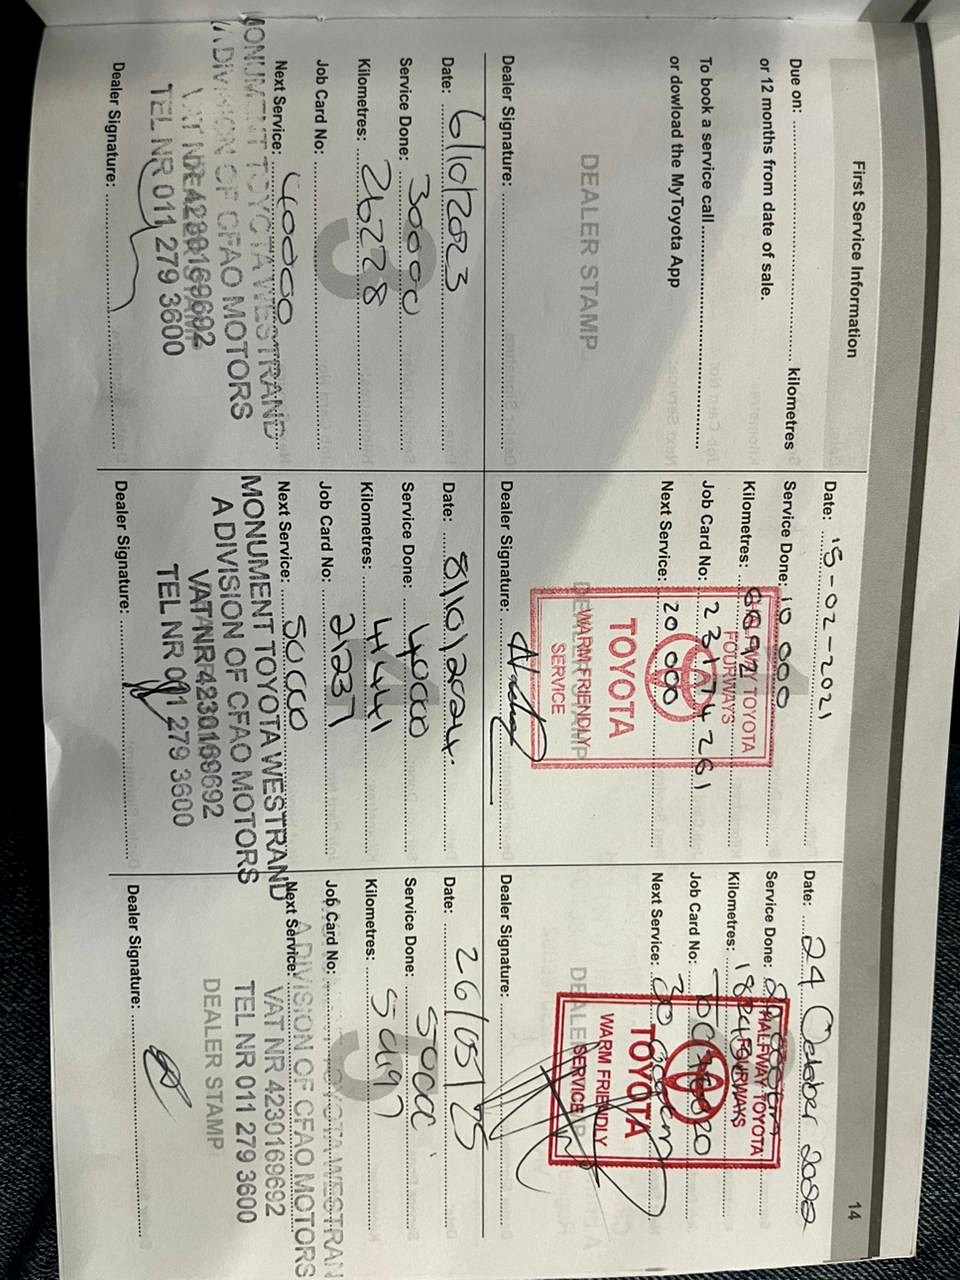 First Service Information
14
Due on: kilometres
or 12 months from date of sale.
To book a service call
or dowload the MyToyota App
DEALER STAMP
Dealer Signature:
Date: 15-02-2021
Service Done: 10 000
Kilometres:
HALFWAY TOYOTA
FOURWAYS
Job Card No: 23174261
Next Service: 20 000
TOYOTA
WARM FRIENDLY
SERVICE
DEALER STAMP
Dealer Signature:
Date: 24 October 2022
Service Done:
Kilometres:
HALFWAY TOYOTA
FOURWAYS
Job Card No:
Next Service:
TOYOTA
WARM FRIENDLY
SERVICE
DEALER
Dealer Signature:
3
Date: 6/10/2023
Service Done: 30000
Kilometres: 26228
Job Card No:
Next Service: 40000
MONUMENT TOYOTA WESTRAND
A DIVISION OF CFAO MOTORS
VAT NR 4230169692
TEL NR 011 279 3600
Dealer Signature:
4
Date: 8/10/2024
Service Done: 40000
Kilometres: 41441
Job Card No: 21237
Next Service: 50000
MONUMENT TOYOTA WESTRAND
A DIVISION OF CFAO MOTORS
VAT NR 4230169692
TEL NR 011 279 3600
Dealer Signature:
5
Date: 26/05/25
Service Done:
Kilometres:
Job Card No:
Next Service:
TOYOTA WESTRAN
A DIVISION OF CFAO MOTORS
VAT NR 4230169692
TEL NR 011 279 3600
DEALER STAMP
Dealer Signature: